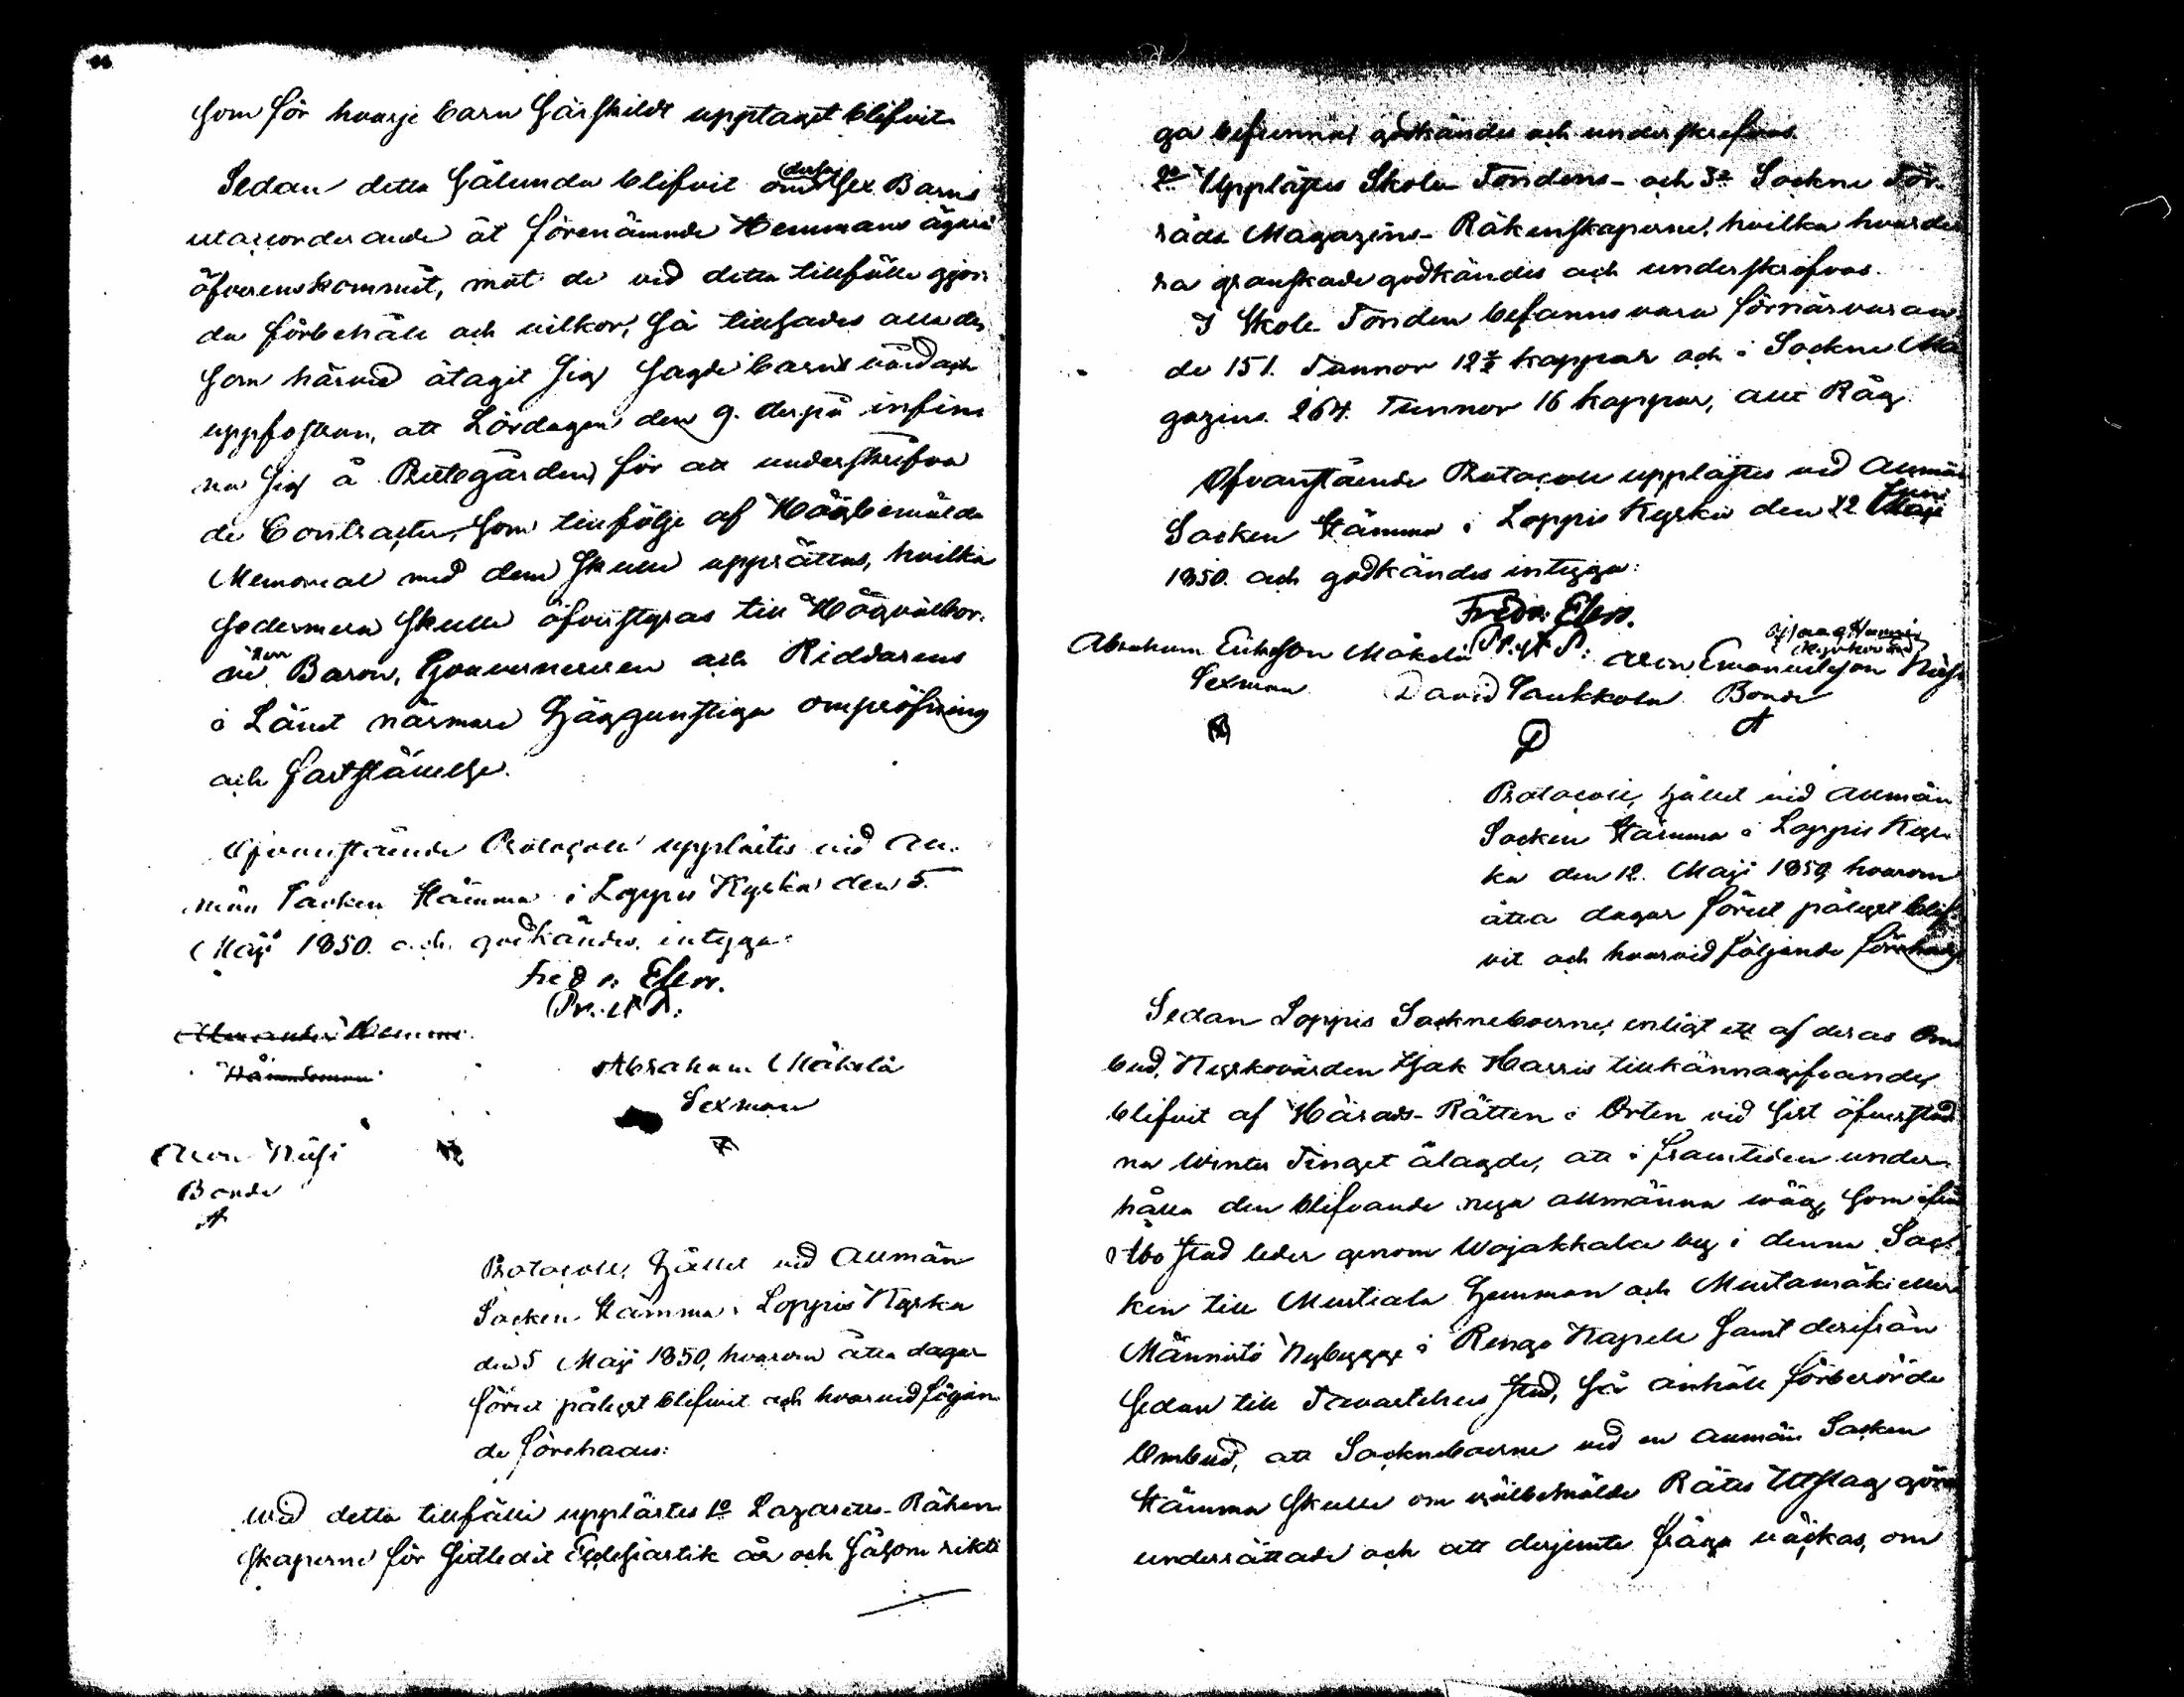 som för hvarje barn särskildt upptaget blifvit.
Sedan detta sålunda blifvit om dessa sex Barns
utaccorderande åt förenämnde Hemmans ägare
öfverenskommit, mot de vid detta tillfälle gjor-
da förbehåll och vilkor, så tillsades alla de,
som härvid åtagit sig sagde barns vård och
uppfostran, att Lördagen den 9. derpå infin-
na sig å Prestegården, för att underskrifva
de Contracter, som till följe af Högbemälde
Memorial med dem skulle upprättas, hvilka
sedermera skulle öfverstyras till Högvälbor-
ne Herr Baron, Gouverneuren och Riddarens
i Länet närmare höggunstiga ompröfning
och fastställelse.
Ofvanstående Protocoll upplästes vid All-
män Socken Stämma i Loppis Kyrka den 5.
Maji 1850. och godkändes, intyga:
Fredr: Elfv.
Pr. A P.
Abraham Mäkelä
Sexman
Aron Niësi
Bonde
A
Protocoll, hållet vid Allmän
Socken Stämma i Loppis Kyrka
den 5 Maji 1850, hvarom åtta dagar
förut pålyst blifvit och hvarvid följan-
de förehades:
Wid detta tillfälle upplästes 1o Lazaretts-Räken-
skaperne för sistledit Ecclesiastik år och såsom rikti-
ga befunna, godkändes och underskrefvos.
2o Upplästes Skole-Fondens- och 3o Sockne För-
råds Magazins-Räkenskaperne, hvilka hvarde-
ra granskade godkändes och underskrefvos.
I Skole-Fonden befanns vara förnärvaran-
de 151. Tunnor 12 kappar och i Sockne Ma-
gazins 264. Tunnor 16 kappar, allt Råg.
Ofvanstående Protocoll upplästes vid Allmän
Socken Stämma i Loppis Kyrka den 22 Juni
1850. och godkändes intyga:
Fredr: Elfv.
Pr. A P.
Abraham Ericksson Mäkelä
Sexman
David Saukkola
Aron Emanuelsson Niësi
Bonde
D
A
Protocoll, hållet vid Allmän
Socken Stämma i Loppis Kyr-
ka den 12. Maji 1850, hvarom
åtta dagar förut pålyst blif-
vit och hvarvid följande förehades
Sedan Loppis Socknebоerne, enligt ett af deras Om-
bud, Kyrkovärden Isak Harris tillkännagifvande,
blifvit af Härads-Rätten i Orten vid sist öfverståd-
na Winter Tinget ålagde, att i framtiden under-
hålla den blifvande nya allmänna väg, som ifrån
Åbo stad leder genom Wojakkala by i denna Soc-
ken till Mustiala hemman och Mustamäki eller
Männistö Nybygge i Rengo Kapell samt derifrån
sedan till Tavastehus stad, så anhöll förberörde
Ombud, att Socknebоerne vid en allmän Socken
Stämma skulle om välbemälde Rätts Utslag göras
underrättade och att derjemte fråga väckas, om